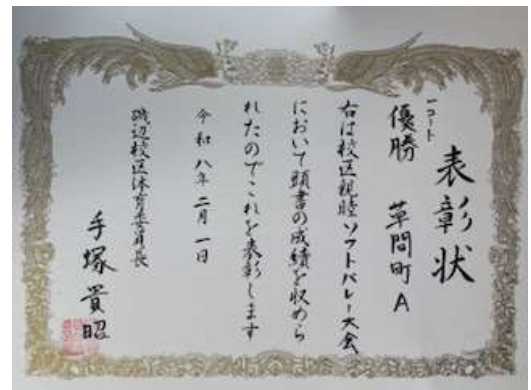 表彰状
一コート
優勝 草間町A
右は校区親睦ソフトバレー大会
において頭書の成績を収めら
れたのでこれを表彰します
令和八年二月一日
磯辺校区体育委員長
手塚貴昭